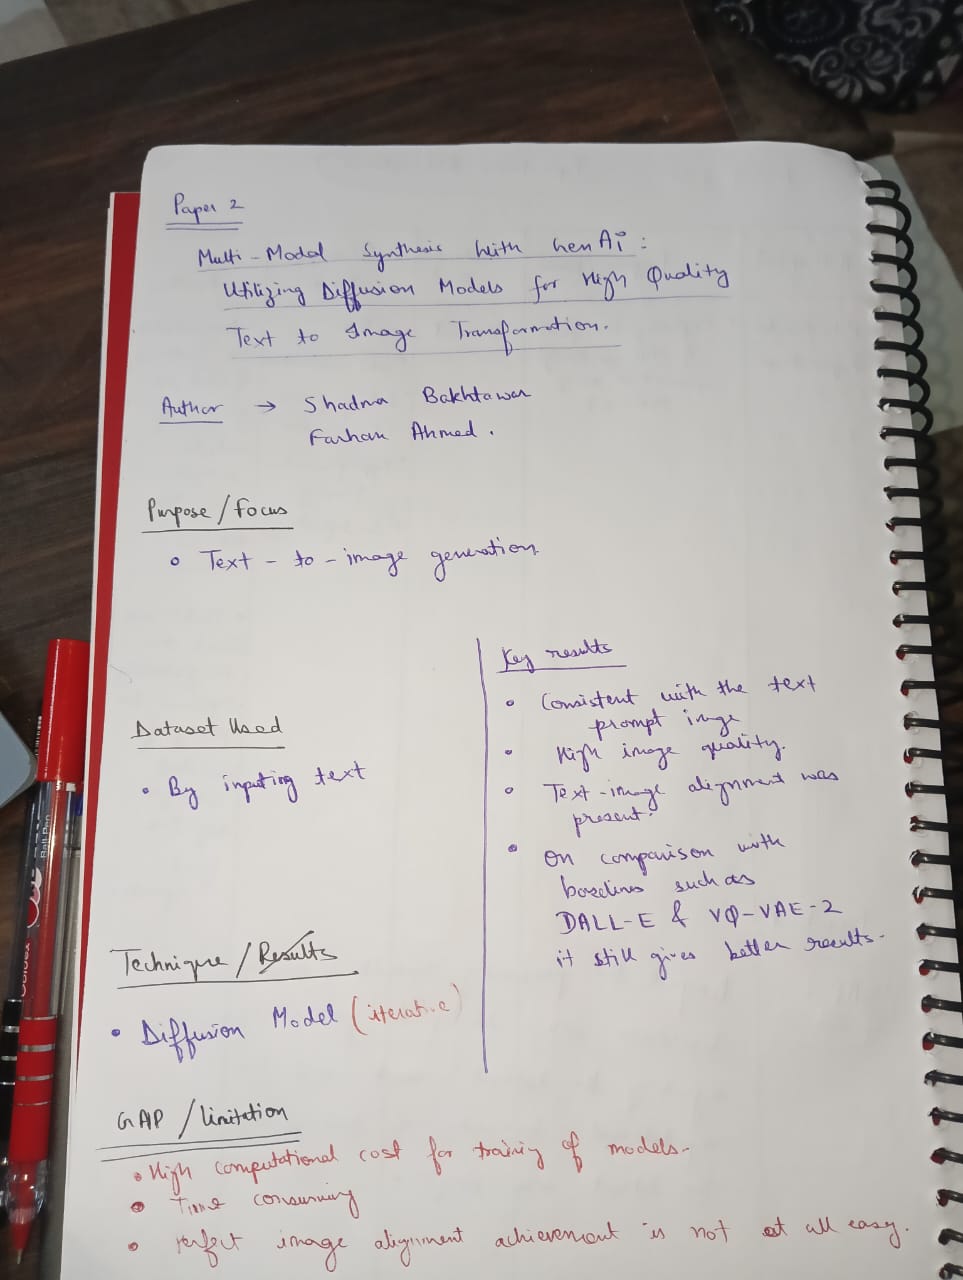 Paper 2
Multi-Modal Synthesis with GenAi:
Utilizing Diffusion Models for High Quality
Text to Image Transformation.
Author → Shadma Bakhtawar
Farhan Ahmed.
Purpose/Focus
• Text-to-image generation.
Dataset Used
• By inputing text
Technique/Results
• Diffusion Model (iterative)
Key results
• Consistent with the text
prompt image
• High image quality.
• Text-image alignment was
present.
• On comparison with
baselines such as
DALL-E & VQ-VAE-2
it still gives better results.
GAP/limitation
• High computational cost for training of models.
• Time consuming
• Perfect image alignment achievement is not at all easy.
Ball Pen